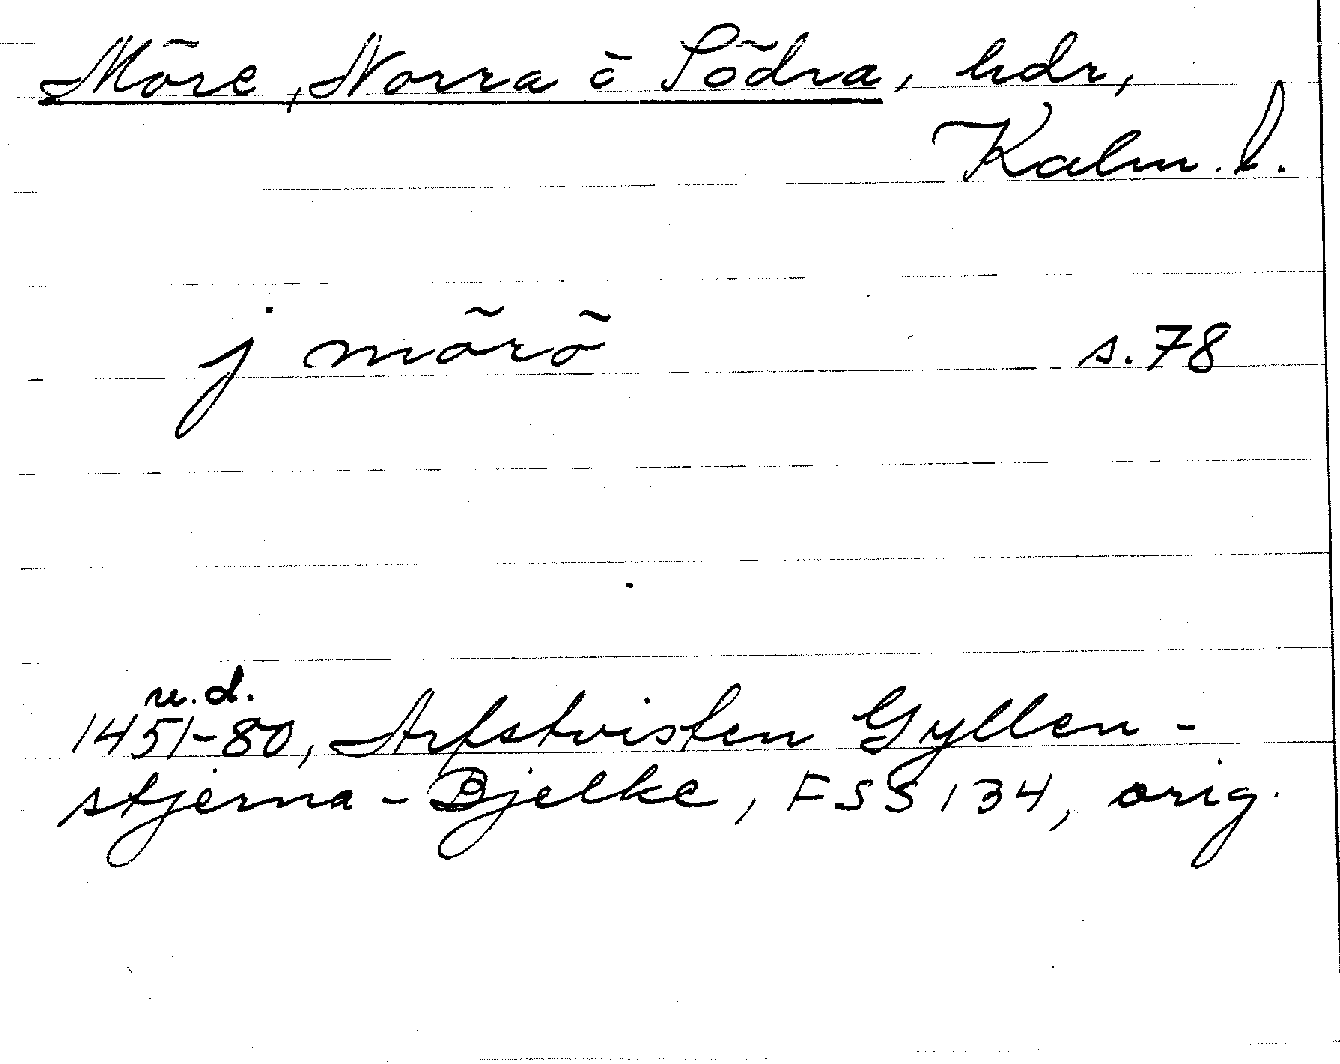 Möre, Norra o Södra, hdr,
Kalm. l.
j mörö s. 78
u. d.
1451-80, Arfstvisten Gyllen-
stjerna - Bjelke, FSS 134, orig.